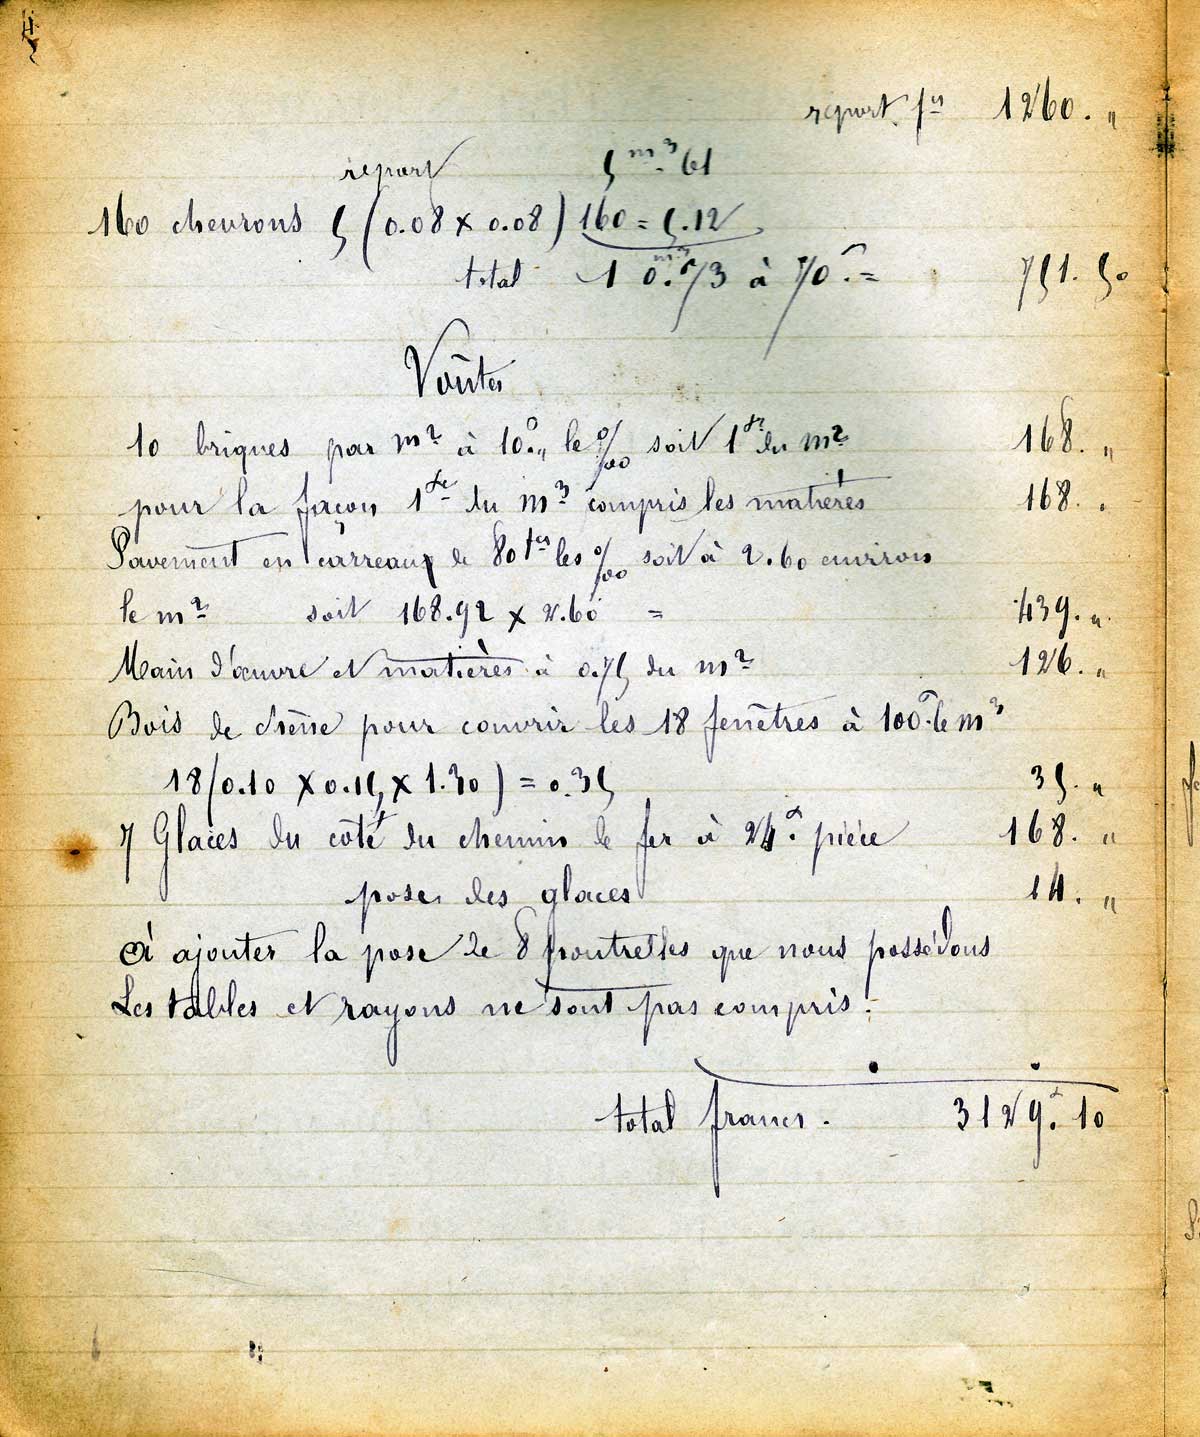 4
report frs 1260. "
report 5 m3. 61
160 chevrons 5 (0.08 x 0.08) 160 = 5.12
total 10.m3 73 à 70f. = 751. 50
Voûtes
10 briques par m2 à 10f. " le %00 soit 1fr du m2 168. "
pour la façon 1fr du m2 compris les matières 168. "
Pavement en carreaux de 80frs les %00 soit à 2.60 environ
le m2 soit 168.92 x 2.60 = 439. "
Main d'œuvre et matières à 0.75 du m2 126. "
Bois de chêne pour couvrir les 18 fenêtres à 100f. le m3
18 (0.10 x 0.15 x 1.30) = 0.35 35. "
7 Glaces du côté du chemin de fer à 24f. pièce 168. "
pose des glaces 14. "
à ajouter la pose de 8 poutrelles que nous possédons
Les tables et rayons ne sont pas compris.
total francs. 3129f. 10